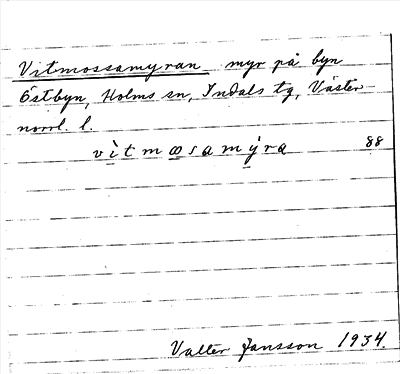 Vitmossamyran myr på byn
Östbyn, Holms sn, Indals tg, Väster-
norrl. l.
vìtmωsamýra 88
Valter Jansson 1934.